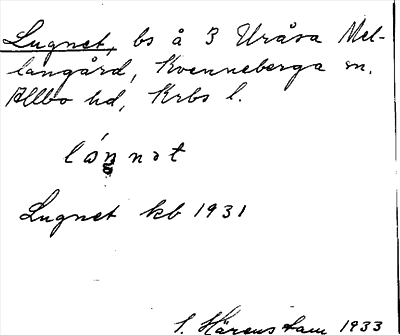 Lugnet, bs å 3 Uråsa Mel-
langård, Kvenneberga sn.
Allbo hd, Krbs l.
lǿŋnət
Lugnet kb 1931
S. Härenstam 1933